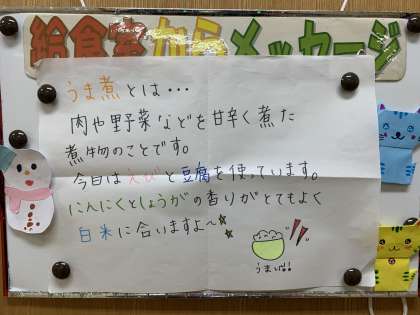 給食室からメッセージ
うま煮とは・・・
肉や野菜などを甘辛く煮た
煮物のことです。
今日はえびと豆腐を使っています。
にんにくとしょうがの香りがとてもよく
白米に合いますよ～
うまい!!